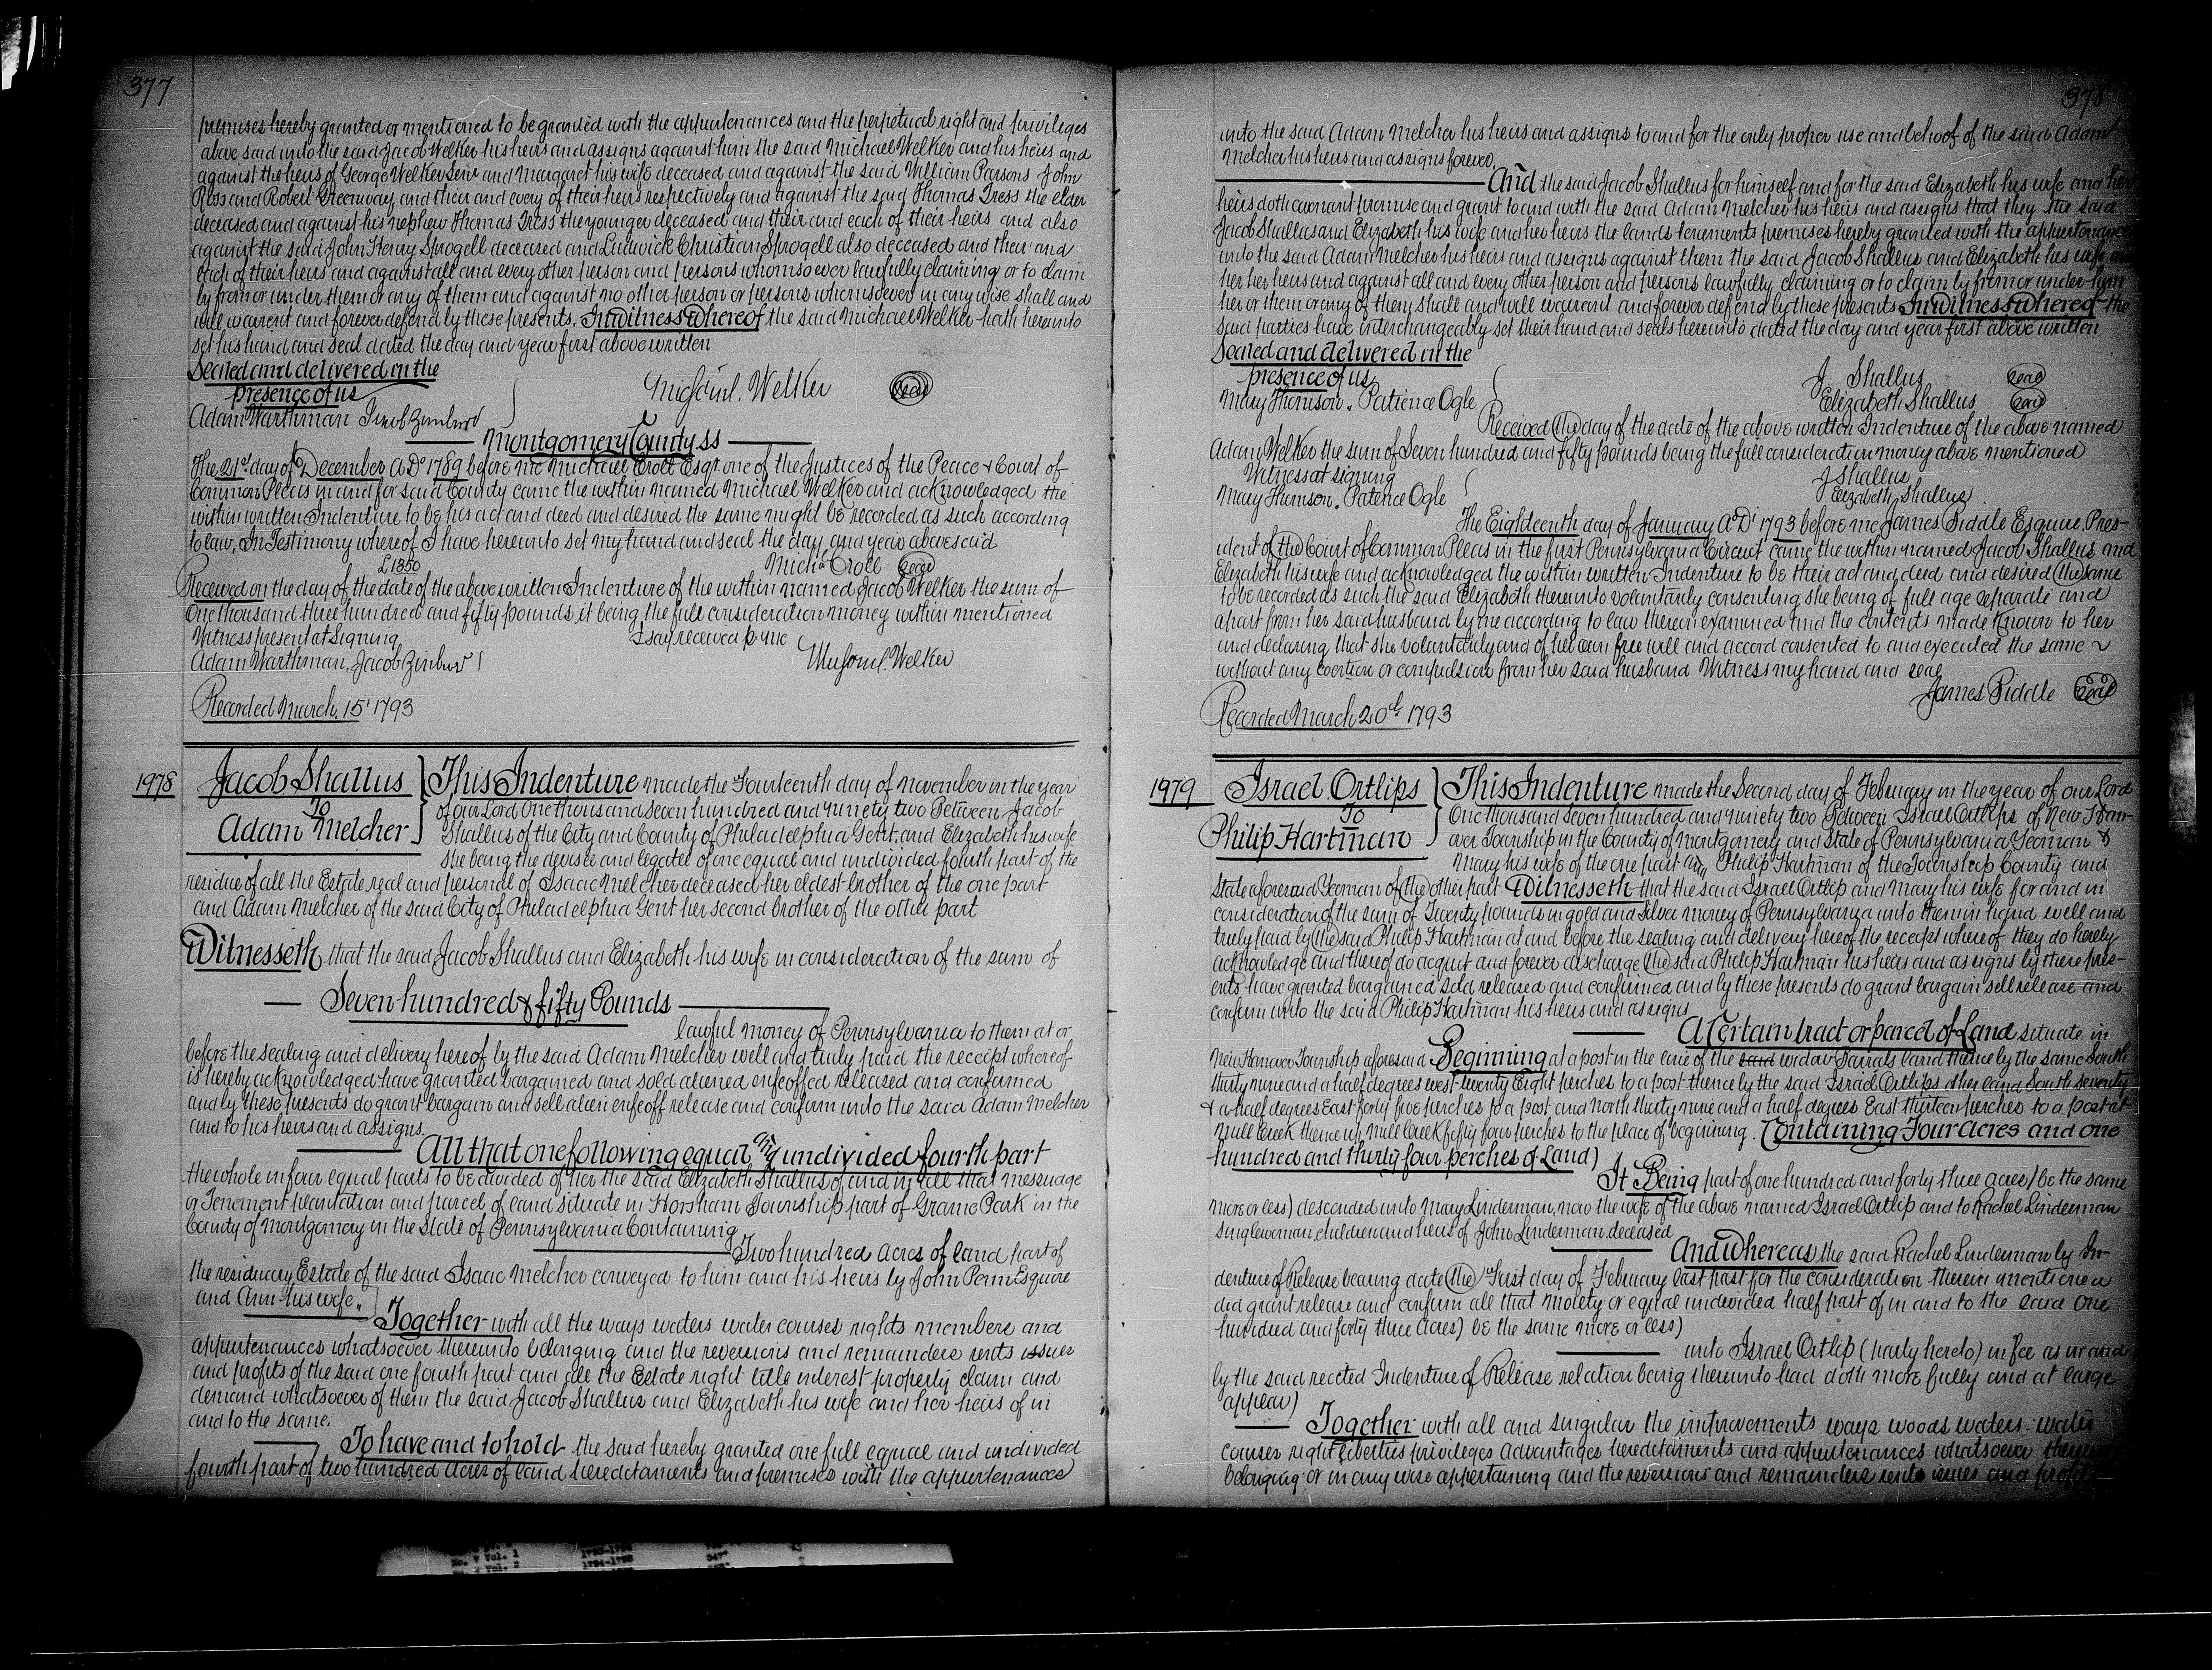 377
premises hereby granted or mentioned to be granted with the appurtenances and the perpetual right and privileges
above said unto the said Jacob Welker his heirs and assigns against him the said Michael Welker and his heirs and
against the heirs of George Welker Senr and Margaret his wife deceased and against the said William Parsons John
Ross and Robert Greenway and their and every of their heirs respectively and against the said Thomas Tress the elder
deceased and against his nephew Thomas Tress the younger deceased and their and each of their heirs and also
against the said John Henry Sprogell deceased and Ludwick Christian Sprogell also deceased and their and
each of their heirs and against all and every other person and persons whomsoever lawfully claiming or to claim
by from or under them or any of them and against no other person or persons whomsoever in any wise shall and
will warrent and forever defend by these presents. In witness whereof the said Michael Welker hath hereunto
set his hand and seal dated the day and year first above written
Sealed and delivered in the
presence of us
Welker seal
Adam Warthman Jacob
Montgomery County ss
The 21st day of December A.D. 1789 before me Michael Croll Esqr. one of the Justices of the Peace & Court of
Common Pleas in and for said County came the within named Michael Welker and acknowledged the
within written Indenture to be his act and deed and desired the same might be recorded as such according
to law. In Testimony whereof I have hereunto set my hand and seal the day and year abovesaid
£1350
Michl Croll seal
Received on the day of the date of the above written Indenture of the within named Jacob Welker the sum of
One thousand three hundred and fifty pounds it being the full consideration money within mentioned
Witness present at Signing
I say received p me
Adam Warthman, Jacob
Welker
Recorded March 15t 1793
1978
Jacob Shallus
To
Adam Melcher
This Indenture made the Fourteenth day of November in the year
of our Lord One thousand Seven hundred and ninety two Between Jacob
Shallus of the City and County of Philadelphia Gent. and Elizabeth his wife
She being the devisee and legatee of one equal and undivided fourth part of the
residue of all the Estate real and personal of Isaac Melcher deceased her eldest brother of the one part
and Adam Melcher of the said City of Philadelphia Gent her second brother of the other part
Witnesseth that the said Jacob Shallus and Elizabeth his wife in consideration of the sum of
Seven hundred & fifty Pounds
lawful money of Pennsylvania to them at or
before the sealing and delivery hereof by the said Adam Melcher well and truly paid the receipt whereof
is hereby acknowledged have granted bargained and sold aliened enfeoffed released and confirmed
and by these presents do grant bargain and sell alien enfeoff release and confirm unto the said Adam Melcher
and to his heirs and assigns.
All that one following equal and undivided fourth part
the whole in four equal parts to be divided of her the said Elizabeth Shallus of and in all that message
or Tenement plantation and parcel of land situate in Horsham Township part of Grame Park in the
County of Montgomery in the State of Pennsylvania Containing
Two hundred acres of land part of
the residuary Estate of the said Isaac Melcher conveyed to him and his heirs by John Penn Esquire
and Ann his wife.
Together with all the ways waters water courses rights members and
appurtenances whatsoever thereunto belonging and the reversions and remainders rents issues
and profits of the said one fourth part and all the Estate right title interest property claim and
demand whatsoever of them the said Jacob Shallus and Elizabeth his wife and her heirs of in
and to the same.
To have and to hold the said hereby granted one full equal and undivided
fourth part of two hundred acres of land hereditaments and premises with the appurtenances
378
unto the said Adam Melcher his heirs and assigns to and for the only proper use and behoof of the said Adam
Melcher his heirs and assigns forever.
And the said Jacob Shallus for himself and for the said Elizabeth his wife and her
heirs doth covenant promise and grant to and with the said Adam Melcher his heirs and assigns that they the said
Jacob Shallus and Elizabeth his wife and her heirs the lands tenements premises hereby granted with the appurtenances
unto the said Adam Melcher his heirs and assigns against them the said Jacob Shallus and Elizabeth his wife and
her heirs and against all and every other person and persons lawfully claiming or to claim by from or under him
her or them or any of them shall and will warrant and forever defend by these presents In witness whereof the
said parties have interchangeably set their hand and seals hereunto dated the day and year first above written
Sealed and delivered in the
presence of us
Mary Thomson. Patience Ogle
J Shallus seal
Elizabeth Shallus seal
Received the day of the date of the above written Indenture of the above named
Adam Welker the sum of Seven hundred and fifty pounds being the full consideration money above mentioned
Witness at signing
Mary Thomson. Patience Ogle
J Shallus
Elizabeth Shallus
The Eighteenth day of January A.D. 1793 before me James Biddle Esquire Pres-
ident of the Court of Common Pleas in the first Pennsylvania Circuit came the within named Jacob Shallus and
Elizabeth his wife and acknowledged the within written Indenture to be their act and deed and desired the same
to be recorded as such the said Elizabeth thereunto voluntarily consenting she being of full age separate and
apart from her said husband by me according to law therein examined and the contents made known to her
and declaring that she voluntarily and of her own free will and accord consented to and executed the same
without any coertion or compulsion from her said husband Witness my hand and seal
James Biddle seal
Recorded March 20th 1793
1979
Israel Ortlips
To
Philip Hartman
This Indenture made the Second day of February in the year of our Lord
One thousand seven hundred and ninety two Between Israel Ortlips of New Han-
over Township in the County of Montgomery and State of Pennsylvania Yeoman &
Mary his wife of the one part and Philip Hartman of the Township County and
State aforesaid Yeoman of the other part Witnesseth that the said Israel Ortlip and Mary his wife for and in
consideration of the sum of Twenty pounds in gold and Silver money of Pennsylvania unto them in hand well and
truly paid by the said Philip Hartman at and before the sealing and delivery hereof the receipt whereof they do hereby
acknowledge and thereof do acquit and forever discharge the said Philip Hartman his heirs and assigns by these pres-
ents have granted bargained sold released and confirmed and by these presents do grant bargain sell release and
confirm unto the said Philip Hartman his heirs and assigns
A Certain tract or parcel of Land situate in
New Hanover Township aforesaid Beginning at a post in the line of the said widow land thence by the same South
thirty nine and a half degrees west twenty Eight perches to a post thence by the said Israel Ortlips other land South seventy
& a half degrees East forty five perches to a post and North thirty nine and a half degrees East thirteen perches to a post at
Mill Creek thence up Mill Creek fifty four perches to the place of beginning. Containing Four acres and one
hundred and thirty four perches of Land)
It Being part of one hundred and forty three acres (be the same
more or less) descended unto Mary Linderman, now the wife of the above named Israel Ortlip and to Rachel Linderman
Singlewoman, children and heirs of John Linderman deceased
And whereas the said Rachel Linderman by In-
denture of Release bearing date the First day of February last past for the consideration therein mentioned
did grant release and confirm all that Moiety or equal undivided half part of in and to the said one
hundred and forty three acres) be the same more or less)
unto Israel Ortlip (party hereto) in fee as in and
by the said recited Indenture of Release relation being thereunto had doth more fully and at large
appear)
Together with all and singular the improvements ways woods waters water
courses right liberties privileges advantages hereditaments and appurtenances whatsoever thereunto
belonging or in any wise appertaining and the reversions and remainders rents issues and profits
No. 7 Vol. 1
Vol. 2
1794-1795
547